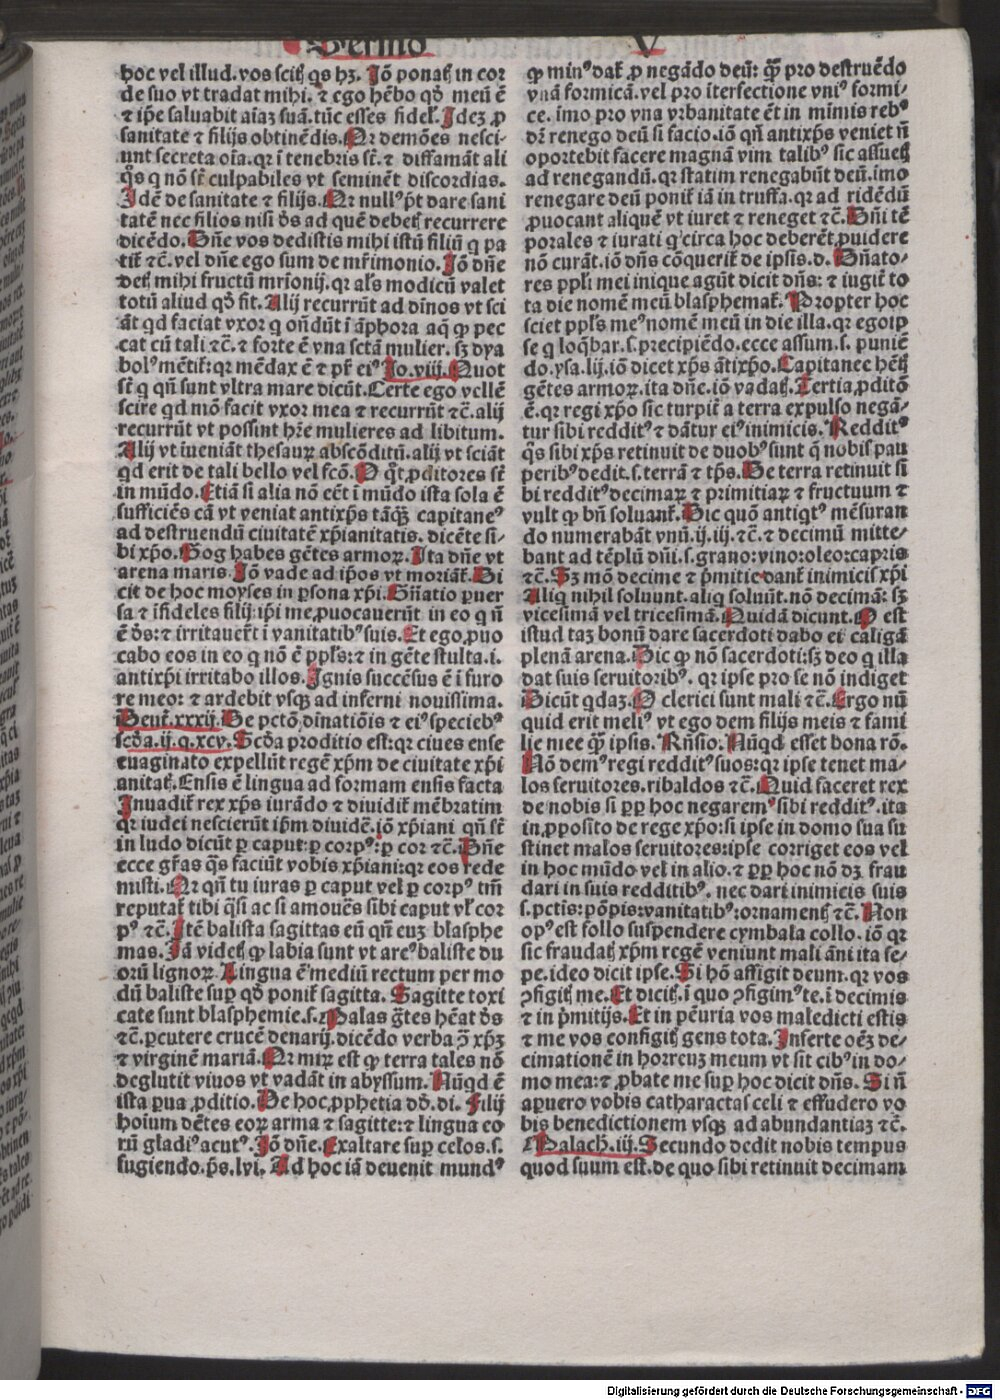 Sermo V
hoc vel illud. vos scitꝭ qs hꝫ. Jō ponatꝭ in cor
de suo vt tradat mihi. ⁊ ego hēbo qd̄ meū ē
⁊ ip̄e saluabit aīaꝫ suā. tūc esses fidel. Jdeꝫ ꝓ
sanitate ⁊ filijs obtinēdis. Qr demōes nesci-
unt secreta oīa. qr ī tenebris sūt. ⁊ diffamāt ali
q̄s q nō sūt culpabiles vt seminēt discordias.
Jdē de sanitate ⁊ filijs. Qr null⁹ pōt dare sani
tatē nec filios nisi d̄s ad quē debetꝭ recurrere
dicēdo. Dn̄e vos dedistis mihi istū filiū q pa
tit̄ ⁊c̄. vel dn̄e ego sum de mr̄imonio. Jō dn̄e
detꝭ mihi fructū mr̄ionij. qr als modicū valet
totū aliud qd̄ fit. Alij recurrūt ad dīnos vt sci
āt qd faciat vxor q on̄dūt ī āphora aq̄ ꝙ pec
cat cū tali ⁊c̄. ⁊ forte ē vna sctā mulier. sꝫ dya
bol⁹ mētit̄: qr mēdax ē ⁊ pr̄ ei⁹ Jo. viij. Quot
sūt q qn̄ sunt vltra mare dicūt. Certe ego vellē
scire qd mō facit vxor mea ⁊ recurrūt ⁊c̄. alij
recurrūt vt possint hr̄e mulieres ad libitum.
Alij vt īueniāt thesauꝝ abscōditū. alij vt sciāt
qd erit de tali bello vel fcō. O qt̄ ꝓditores sūt
in mūdo. Etiā si alia nō eēt ī mūdo ista sola ē
sufficiēs cā vt veniat antixp̄s tāq̄ꝫ capitane⁹
ad destruendū ciuitatē xp̄ianitatis. dicēte si-
bi xp̄o. Gog habes gētes armoꝝ. Jta dn̄e vt
arena maris. Jō vade ad ip̄os vt moriāt̄. Di
cit de hoc moyses in ꝑsona xp̄i. Gn̄atio ꝑuer
sa ⁊ īfideles filij: ip̄i me ꝓuocauerūt in eo q n̄
ē d̄s: ⁊ irritauer̄t ī vanitatib⁹ suis. Et ego ꝓuo
cabo eos in eo q nō ē ppl̄s: ⁊ in gēte stulta. i.
antixp̄i irritabo illos. Jgnis succēsus ē ī furo
re meo: ⁊ ardebit vsqꝫ ad inferni nouissima.
Deut̄. xxxij. De pctō dīnatiōis ⁊ ei⁹ specieb⁹
scd̄a. ij. q. xcv. Scd̄a proditio est: qr ciues ense
euaginato expellūt regē xp̄m de ciuitate xp̄i
anitatꝭ. Ensis ē lingua ad formam ensis facta
Jnuadit̄ rex xp̄s iurādo ⁊ diuidit̄ mēbratim
qr iudei nescierūt ip̄m diuidē. iō xp̄iani qn̄ sūt
in ludo dicūt ꝑ caput: ꝑ corp⁹: ꝑ cor ⁊c̄. Dn̄e
ecce gr̄as q̄s faciūt vobis xp̄iani: qr eos rede
misti. Qr qn̄ tu iuras ꝑ caput vel ꝑ corp⁹ tm̄
reputat̄ tibi q̄si ac si amouēs sibi caput vl̄ cor
p⁹ ⁊c̄. Jtē balista sagittas eū qn̄ euꝫ blasphe
mas. Jā videtꝭ ꝙ labia sunt vt are⁹ baliste du
orū lignoꝝ. Lingua ē mediū rectum per mo
dū baliste suꝑ qd̄ ponit̄ sagitta. Sagitte toxi
cate sunt blasphemie. s. Malas ḡtes hēat d̄s
⁊c̄. ꝑcutere crucē denarij. dicēdo verba ꝯ xp̄ꝫ
⁊ virginē mariā. Qr miꝝ est ꝙ terra tales nō
deglutit viuos vt vadāt in abyssum. Nūqd ē
ista ꝑua ꝓditio. De hoc ꝓphetia dd̄. di. Filij
hoium dētes eoꝝ arma ⁊ sagitte: ⁊ lingua eo
rū gladi⁹ acut⁹. Jō dn̄e. Exaltare suꝑ celos. s.
fugiendo. ps. lvi. Ad hoc iā deuenit mund⁹
ꝙ min⁹ dat̄ ꝓ negādo deū: q̄ꝫ pro destruēdo
vnā formicā. vel pro īterfectione vni⁹ formi-
ce. imo pro vna vrbanitate ēt in mīmis reb⁹
dr̄ renego deū si facio. iō qn̄ antixp̄s veniet n̄
oportebit facere magnā vim talib⁹ sic assuetꝭ
ad renegandū. qr statim renegabūt deū. imo
renegare deū ponit̄ iā in truffa. qr ad ridēdū
ꝓuocant aliquē vt iuret ⁊ reneget ⁊c̄. Dn̄i tē
porales ⁊ iurati q circa hoc deberēt ꝓuidere
nō curāt. iō dn̄s cōquerit̄ de ipsis. d. Dn̄ato-
res ppl̄i mei inique agūt dicit dn̄s: ⁊ iugit̄ to-
ta die nomē meū blasphemat̄. Propter hoc
sciet ppl̄s me⁹ nomē meū in die illa. qr ego ip
se q loq̄bar. s. precipiēdo. ecce assum. s. punie
do. ysa. lij. iō dicet xp̄s ātixp̄o. Capitanee hētꝭ
gētes armoꝝ. ita dn̄e. iō vadatꝭ. Tertia ꝓditō
ē. qr regi xp̄o sic turpit̄ a terra expulso negā-
tur sibi reddit⁹ ⁊ dātur ei⁹ inimicis. Reddit⁹
q̄s sibi xp̄s retinuit de duob⁹ sunt q̄ nobis pau
perib⁹ dedit. s. terrā ⁊ tp̄s. De terra retinuit si
bi reddit⁹ decimaꝝ ⁊ primitiaꝝ ⁊ fructuum ⁊
vult ꝙ bn̄ soluant̄. Dic quō antiqt⁹ mēsuran
do numerabāt vnū. ij. iij. ⁊c̄. ⁊ decimū mitte-
bant ad tēplū dn̄i. s. grano: vino: oleo: capris
⁊c̄. Sꝫ mō decime ⁊ p̄mitie dant̄ inimicis xp̄i
Aliq nihil soluunt. aliq soluūt. nō decimā: sꝫ
vicesimā vel tricesimā. Quidā dicunt. O est
istud taꝫ bonū dare sacerdoti dabo ei caligā
plenā arena. Dic ꝙ nō sacerdoti: sꝫ deo q illa
dat suis seruitorib⁹. qr ipse pro se nō indiget
Dicūt qdaꝫ. O clerici sunt mali ⁊c̄. Ergo nū
quid erit meli⁹ vt ego dem filijs meis ⁊ fami
lie mee q̄ꝫ ipsis. Rn̄sio. Nūqd esset bona rō.
Nō dem⁹ regi reddit⁹ suos: qr ipse tenet ma-
los seruitores. ribaldos ⁊c̄. Quid faceret rex
de nobis si ꝓꝑ hoc negarem⁹ sibi reddit⁹. ita
in ꝓposito de rege xp̄o: si ipse in domo sua su
stinet malos seruitores: ipse corriget eos vel
in hoc mūdo vel in alio. ⁊ ꝓꝑ hoc nō dꝫ frau
dari in suis redditib⁹. nec dari inimicis suis
s. pctis: pōpis: vanitatib⁹: ornamentꝭ ⁊c̄. Non
op⁹ est follo suspendere cymbala collo. iō qr
sic fraudatꝭ xp̄m regē veniunt mali āni ita se-
pe. ideo dicit ipse. Si hō affigit deum. qr vos
ꝯfigitꝭ me. Et dicitꝭ. ī quo ꝯfigim⁹ te. ī decimis
⁊ in p̄mitijs. Et in pēuria vos maledicti estis
⁊ me vos configitꝭ gens tota. Jnferte oēꝫ de-
cimationē in horreuꝫ meum vt sit cib⁹ in do-
mo mea: ⁊ ꝓbate me suꝑ hoc dicit dn̄s. Si n̄
aꝑuero vobis catharactas celi ⁊ effudero vo
bis benedictionem vsqꝫ ad abundantiaꝫ ⁊c̄.
Malach. iij. Secundo dedit nobis tempus
quod suum est. de quo sibi retinuit decimam
Digitalisierung gefördert durch die Deutsche Forschungsgemeinschaft - DFG